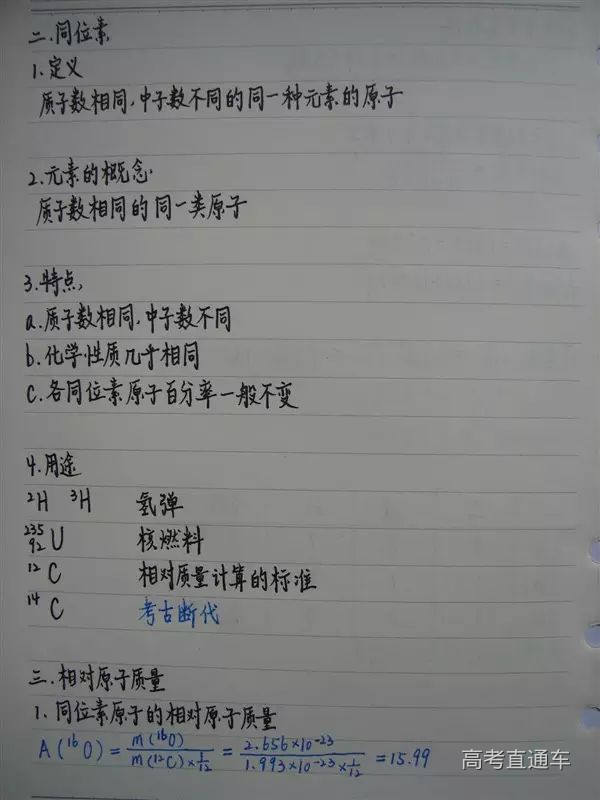 二.同位素
1.定义
质子数相同,中子数不同的同一种元素的原子
2.元素的概念
质子数相同的同一类原子
3.特点,
a.质子数相同,中子数不同
b.化学性质几乎相同
c.各同位素原子百分率一般不变
4.用途
²H ³H 氢弹
²³⁵₉₂U 核燃料
¹²C 相对质量计算的标准
¹⁴C 考古断代
三.相对原子质量
1.同位素原子的相对原子质量
A(¹⁶O)=m(¹⁶O)/m(¹²C)×1/12=2.656×10⁻²³/1.993×10⁻²³×1/12=15.99
高考直通车